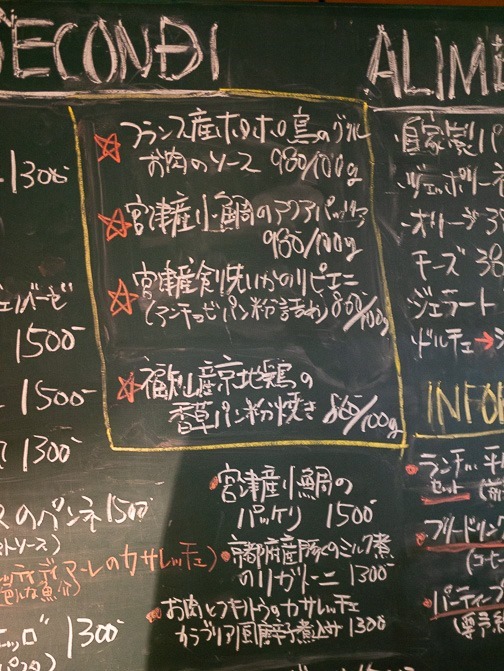 SECONDI
フランス産ホロホロ鳥のグリル
お肉のソース 980/100g
宮津産小鯛のアクアパッツァ
980/100g
宮津産剣先いかのリピエニ
(アンチョビパン粉詰め) 860/100g
福知山産京地鶏の
香草パン粉焼き 860/100g
宮津産小鯛の
パッケリ 1500-
京都府産豚のミルク煮
のリガトーニ 1300-
お肉とフキノトウのカサレッチェ
カラブリア風唐辛子煮込み 1300
1300-
1500-
1500-
1300-
のペンネ 1500-
のカサレッチェ)
1300-
ALIM
自家製パ
オリーブ
チーズ 38
ジェラート
ドルチェ→
INFO
ランチ
セット
フリードリン
(コーヒー
パーティープ